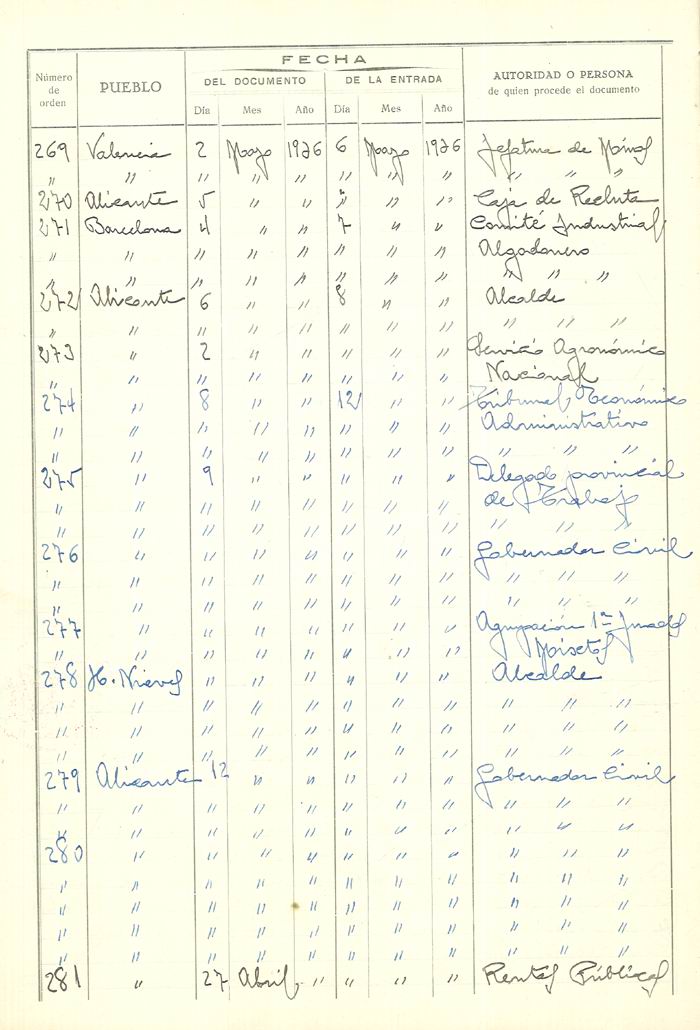 FECHA
Número de orden PUEBLO DEL DOCUMENTO DE LA ENTRADA AUTORIDAD O PERSONA de quien procede el documento
Día Mes Año Día Mes Año
269 Valencia 2 Mayo 1936 6 Mayo 1936 Jefatura de Minas
" " " " " " " " " "
270 Alicante 5 " " " " " Caja de Recluta
271 Barcelona 4 " " 7 " " Comité Industrial
" " " " " " " " Algodonero
" " " " " " " " "
272 Alicante 6 " " 8 " " Alcalde
" " " " " " " " " " "
273 " 2 " " " " " Servicio Agronómico
" " " " " " " " Nacional
274 " 8 " " 12 " " Tribunal Económico
" " " " " " " " Administrativo
" " " " " " " " " "
275 " 9 " " " " " Delegado provincial
" " " " " " " " de Trabajo
" " " " " " " " " " "
276 " " " " " " " Gobernador Civil
" " " " " " " " " " "
" " " " " " " " " " "
277 " " " " " " " Agrupación 1ª
" " " " " " "
278 H. Nieves " " " " " " Alcalde
" " " " " " " " " "
" " " " " " " " " "
" " " " " " " " " "
279 Alicante 12 " " " " " Gobernador Civil
" " " " " " " " " " "
" " " " " " " " " " "
280 " " " " " " " " " "
" " " " " " " " " " "
" " " " " " " " " " "
" " " " " " " " " " "
" " " " " " " " " " "
281 " 27 Abril " " " " Rentas Públicas